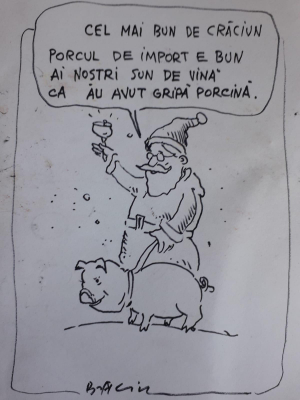 CEL MAI BUN DE CRĂCIUN
PORCUL DE IMPORT E BUN
AI NOSTRI SUN DE VINĂ
CA ĂU AVUT GRIPĂ PORCINĂ.